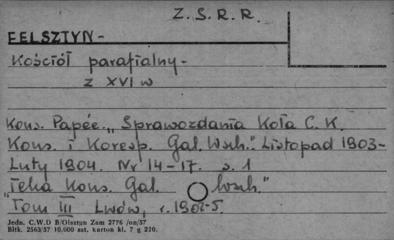 Z. S. R. R.
FELSZTYN-
Kościół parafialny-
z XVI w
Kons. Papée. „Sprawozdania Koła C. K.
Kons. i Koresp. Gal. Wsch." Listopad 1903-
Luty 1904. Nr 14-17. s. 1
"Teka Kons. Gal. Wsch."
Tom III Lwów, r.
Jedn. C.W.D B/Olsztyn Zam 2776 /on/57
Bltk. 2563/57 10.000 szt. karton kl. 7 g 220.